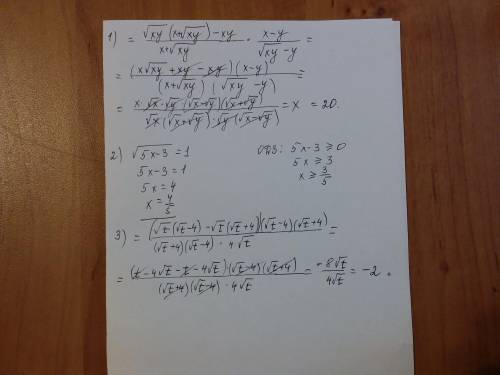 1) = (√xy (x+√xy) − xy)/(x+√xy) · (x−y)/(√xy − y) =
= ((x√xy + xy − xy)(x−y))/((x+√xy)(√xy − y)) =
= (x·√x·√y (√x−√y)(√x+√y))/(√x(√x+√y)·√y(√x−√y)) = x = 20.
2) √5x−3 = 1 ОДЗ: 5x−3 ≥ 0
5x−3 = 1 5x ≥ 3
5x = 4 x ≥ 3/5
x = 4/5
3) = ((√t(√t−4) − √t(√t+4))(√t−4)(√t+4))/((√t+4)(√t−4)·4√t) =
= ((t−4√t−t−4√t)(√t−4)(√t+4))/((√t+4)(√t−4)·4√t) = −8√t/4√t = −2.